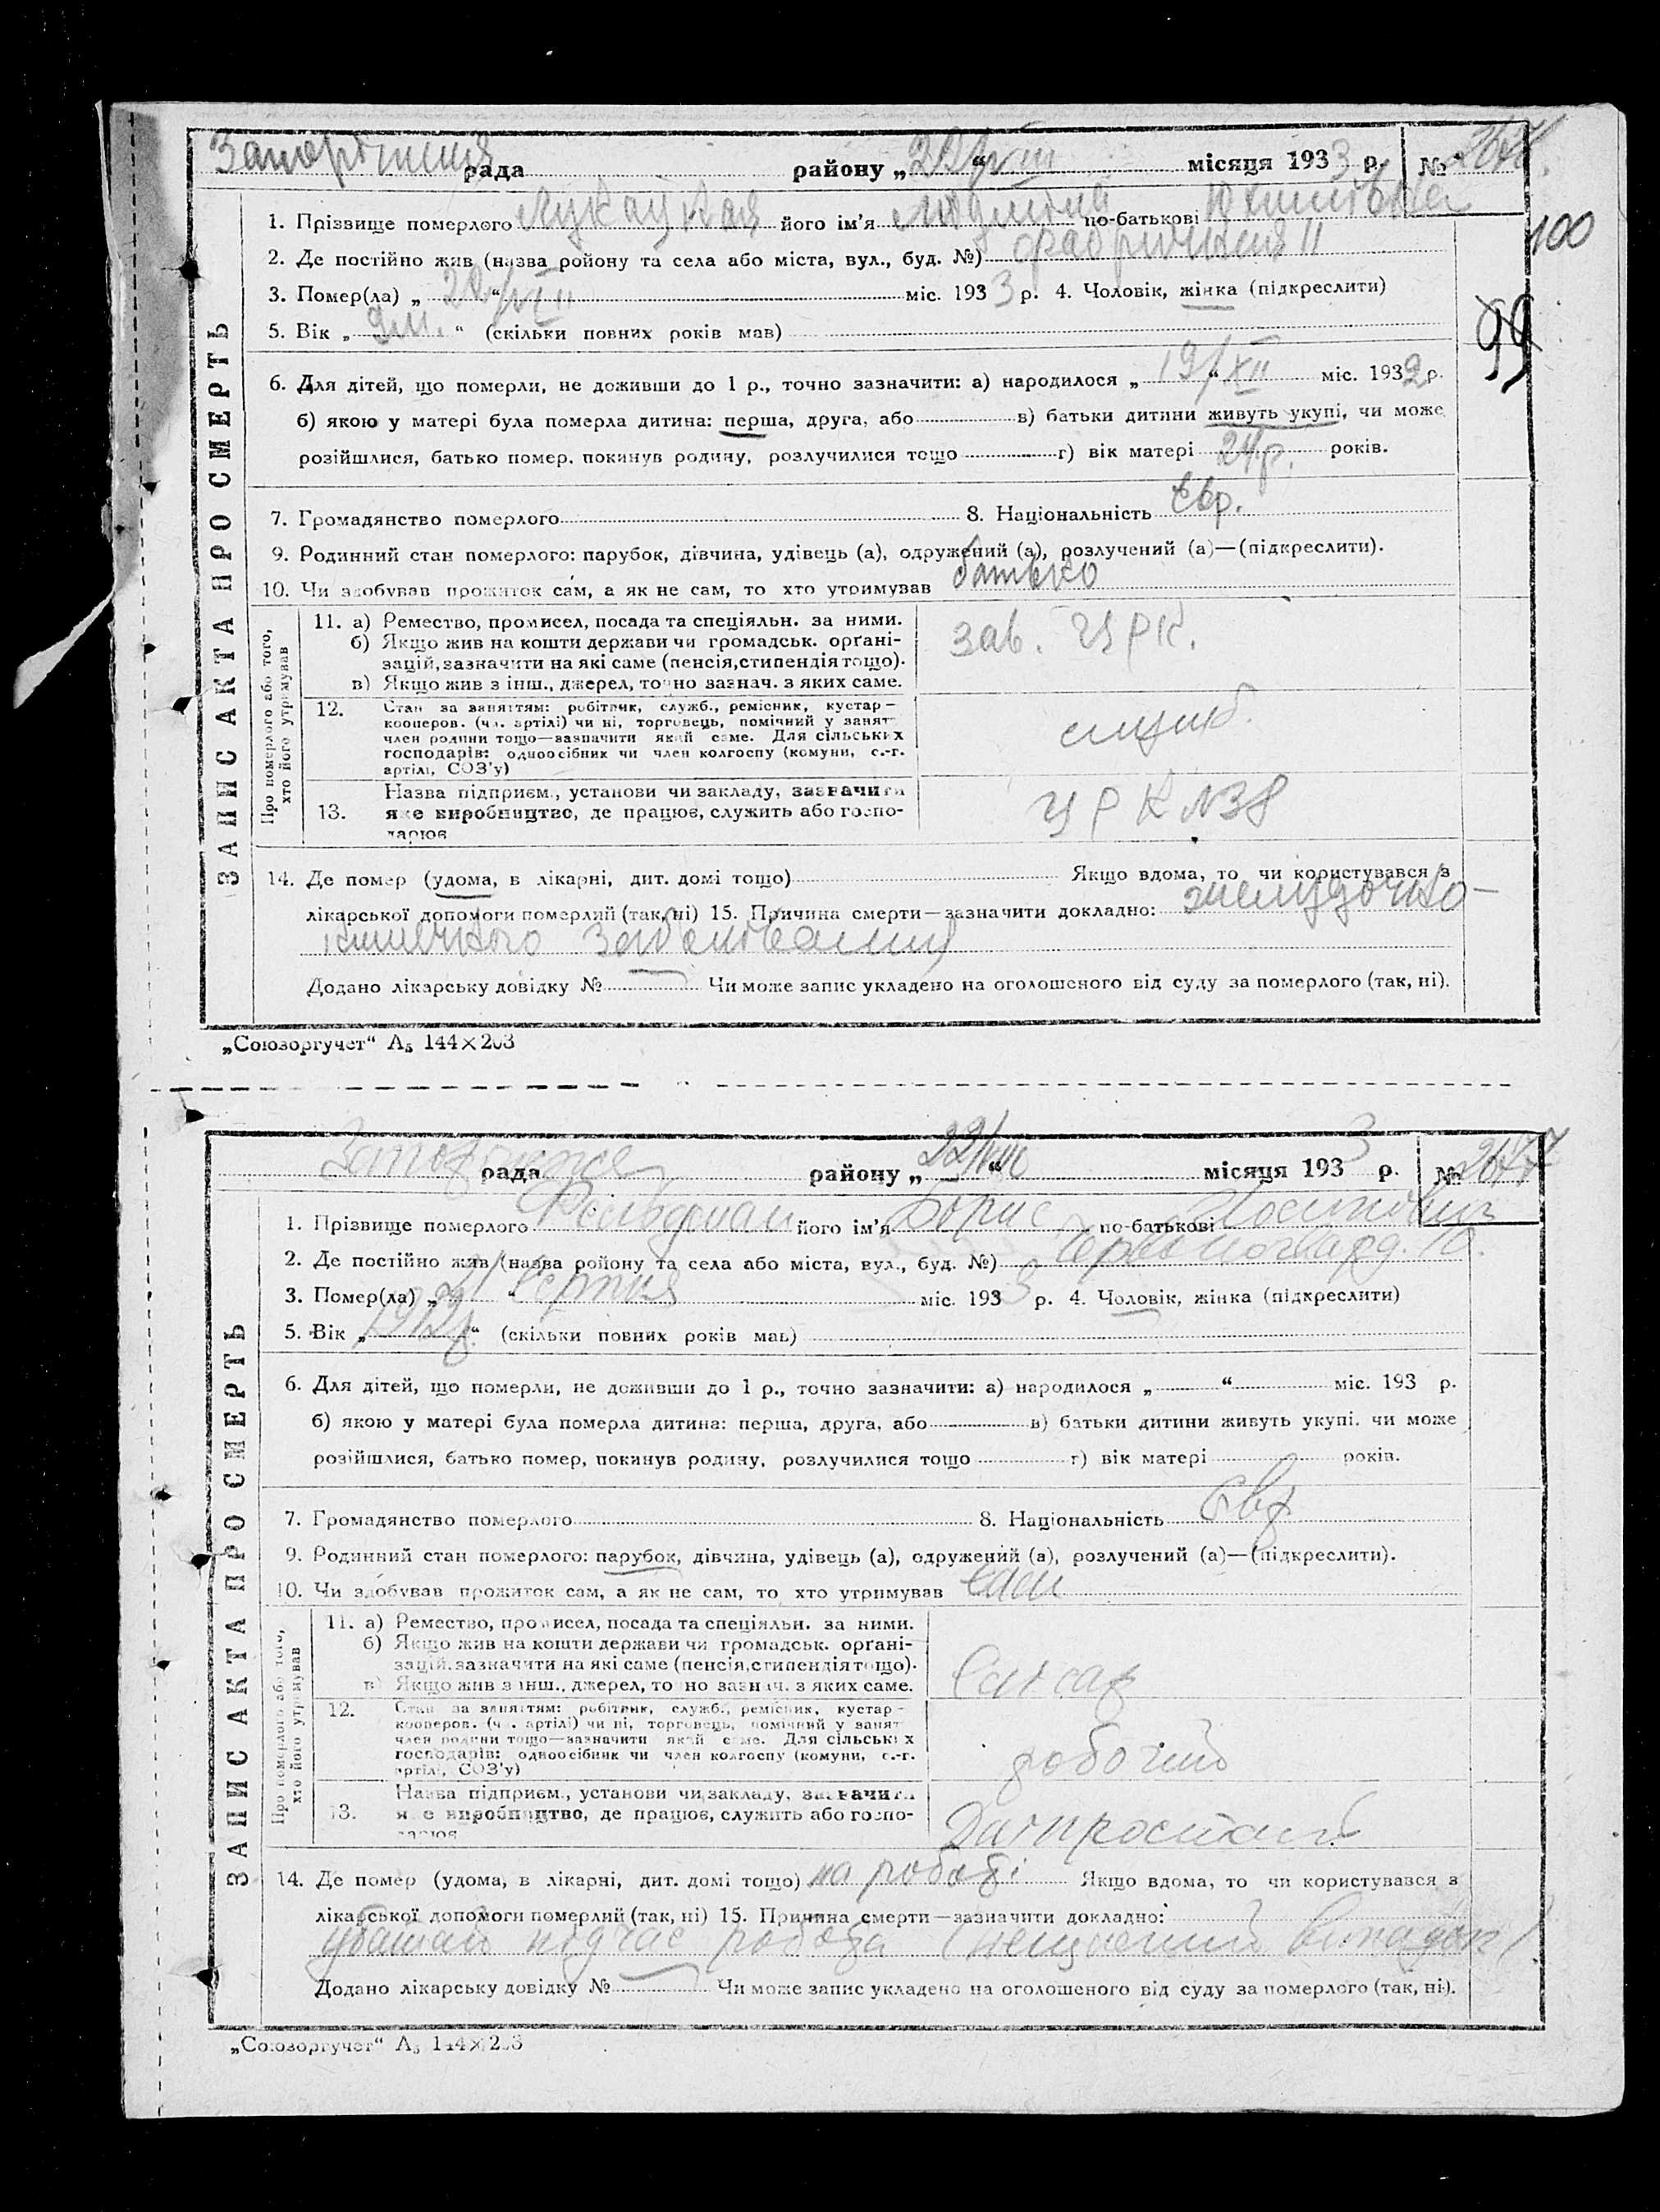 Запоріжжя рада району „22/VIII“ місяця 1933 р. № 2676.
100
1. Прізвище померлого Лукацкая його ім’я Людмила по-батькові Юхимівна
2. Де постійно жив (назва ройону та села або міста, вул., буд. №) фабрична 11
3. Помер(ла) „ 22/VIII “ міс. 1933 р. 4. Чоловік, жінка (підкреслити)
5. Вік „ 9 м. “ (скільки повних років мав)
99
6. Для дітей, що померли, не доживши до 1 р., точно зазначити: а) народилося „ 19/XII “ міс. 1932 р.
б) якою у матері була померла дитина: перша, друга, або в) батьки дитини живуть укупі, чи може
розійшлися, батько помер, покинув родину, розлучилися тощо г) вік матері 24 р. років.
7. Громадянство померлого 8. Національність Євр.
9. Родинний стан померлого: парубок, дівчина, удівець (а), одружений (а), розлучений (а)—(підкреслити).
10. Чи здобував прожиток сам, а як не сам, то хто утримував батько
ЗАПИС АКТА ПРО СМЕРТЬ
Про померлого або того, хто його утримував
11. а) Ремество, промисел, посада та спеціяльн. за ними.
б) Якщо жив на кошти держави чи громадськ. орґані-
зацій, зазначити на які саме (пенсія, стипендія тощо).
в) Якщо жив з інш., джерел, точно зазнач. з яких саме.
зав. ЦРК.
12. Стан за заняттям: робітник, служб., ремісник, кустар—
кооперов. (чл. артілі) чи ні, торговець, помічний у занят
член родини тощо—зазначити який саме. Для сільських
господарів: одноосібник чи член колгоспу (комуни, с.-г.
артілі, СОЗ’у)
служб.
13. Назва підприєм., установи чи закладу, зазначити
яке виробництво, де працює, служить або госпо-
дарює
ЦРК №38
14. Де помер (удома, в лікарні, дит. домі тощо) Якщо вдома, то чи користувався з
лікарської допомоги померлий (так, ні) 15. Причина смерти—зазначити докладно: желудочно-
кишечного заболевания
Додано лікарську довідку № Чи може запис укладено на оголошеного від суду за померлого (так, ні).
„Союзоргучет“ А₅ 144×203
Запоріжжя рада району „22/VIII“ місяця 1933 р. № 2677
1. Прізвище померлого Фельдман його ім’я Борис по-батькові Йосипович
2. Де постійно жив (назва ройону та села або міста, вул., буд. №) Червоногвард. 10.
3. Помер(ла) „ 21 “ серпня міс. 1933 р. 4. Чоловік, жінка (підкреслити)
5. Вік „ 1912 р. “ (скільки повних років мав)
6. Для дітей, що померли, не доживши до 1 р., точно зазначити: а) народилося „ “ міс. 193 р.
б) якою у матері була померла дитина: перша, друга, або в) батьки дитини живуть укупі. чи може
розійшлися, батько помер, покинув родину, розлучилися тощо г) вік матері років.
7. Громадянство померлого 8. Національність Євр
9. Родинний стан померлого: парубок, дівчина, удівець (а), одружений (а), розлучений (а)—(підкреслити).
10. Чи здобував прожиток сам, а як не сам, то хто утримував сам
ЗАПИС АКТА ПРО СМЕРТЬ
Про померлого або того, хто його утримував
11. а) Ремество, промисел, посада та спеціяльн. за ними.
б) Якщо жив на кошти держави чи громадськ. орґані-
зацій, зазначити на які саме (пенсія, стипендія тощо).
в) Якщо жив з інш., джерел, точно зазнач. з яких саме.
Слюсар
12. Стан за заняттям: робітник, служб., ремісник, кустар—
кооперов. (чл. артілі) чи ні, торговець, помічний у занят
член родини тощо—зазначити який саме. Для сільських
господарів: одноосібник чи член колгоспу (комуни, с.-г.
артілі, СОЗ’у)
робочий
13. Назва підприєм., установи чи закладу, зазначити
яке виробництво, де працює, служить або госпо-
дарює
14. Де помер (удома, в лікарні, дит. домі тощо) на роботі Якщо вдома, то чи користувався з
лікарської допомоги померлий (так, ні) 15. Причина смерти—зазначити докладно:
підчас робота (нещасний випадок)
Додано лікарську довідку № Чи може запис укладено на оголошеного від суду за померлого (так, ні).
„Союзоргучет“ А₅ 144×203